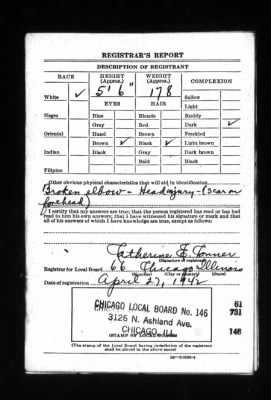 REGISTRAR'S REPORT
DESCRIPTION OF REGISTRANT
RACE
HEIGHT (Approx.)
WEIGHT (Approx.)
COMPLEXION
White ✓
5' 6"
178
Sallow
Light
EYES
HAIR
Negro
Blue
Blonde
Ruddy
Gray
Red
Dark ✓
Oriental
Hazel
Brown
Freckled
Brown ✓
Black ✓
Light brown
Indian
Black
Gray
Dark brown
Bald
Black
Filipino
Other obvious physical characteristics that will aid in identification
Broken elbow - Head injury - (scar on
forehead)
I certify that my answers are true; that the person registered has read or has had
read to him his own answers; that I have witnessed his signature or mark and that
all of his answers of which I have knowledge are true, except as follows:
Catherine E. Conner
(Signature of registrar)
Registrar for Local Board 66 Chicago Illinois
(Number) (City or county) (State)
Date of registration April 27, 1942
CHICAGO LOCAL BOARD No. 146
61
731
3126 N. Ashland Ave.
CHICAGO, ILL.
146
(STAMP OF LOCAL BOARD)
(The stamp of the Local Board having jurisdiction of the registrant
shall be placed in the above space)